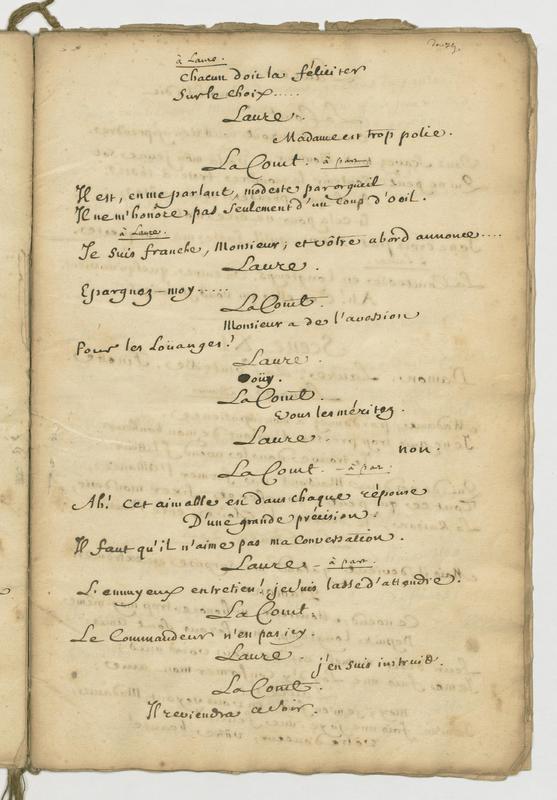 à Laure.
Chacun doit la féliciter
Sur le choix.....
Laure.
Madame est trop polie.
La Comt. à part
Il est, en me parlant, modeste par orgueil
Il ne m'honore pas seulement d'un coup d'oeil.
à Laure.
Je suis franche, Monsieur, et vôtre abord annonce....
Laure.
Epargnez-moy.....
La Comt.
Monsieur a de l'aversion
Pour les Loüanges!
Laure.
oüy.
La Comt.
vous les méritez.
Laure.
non.
La Comt. - à par.
Ah! cet aimable est dans chaque réponse
D'une grande précision.
Il faut qu'il n'aime pas ma conversation.
Laure - à part.
L'ennuyeux entretien! je suis lassé d'attendre.
La Comt.
Le Commandeur n'en pas icy.
Laure.
j'en suis instruit.
La Comt.
Il reviendra ce soir.